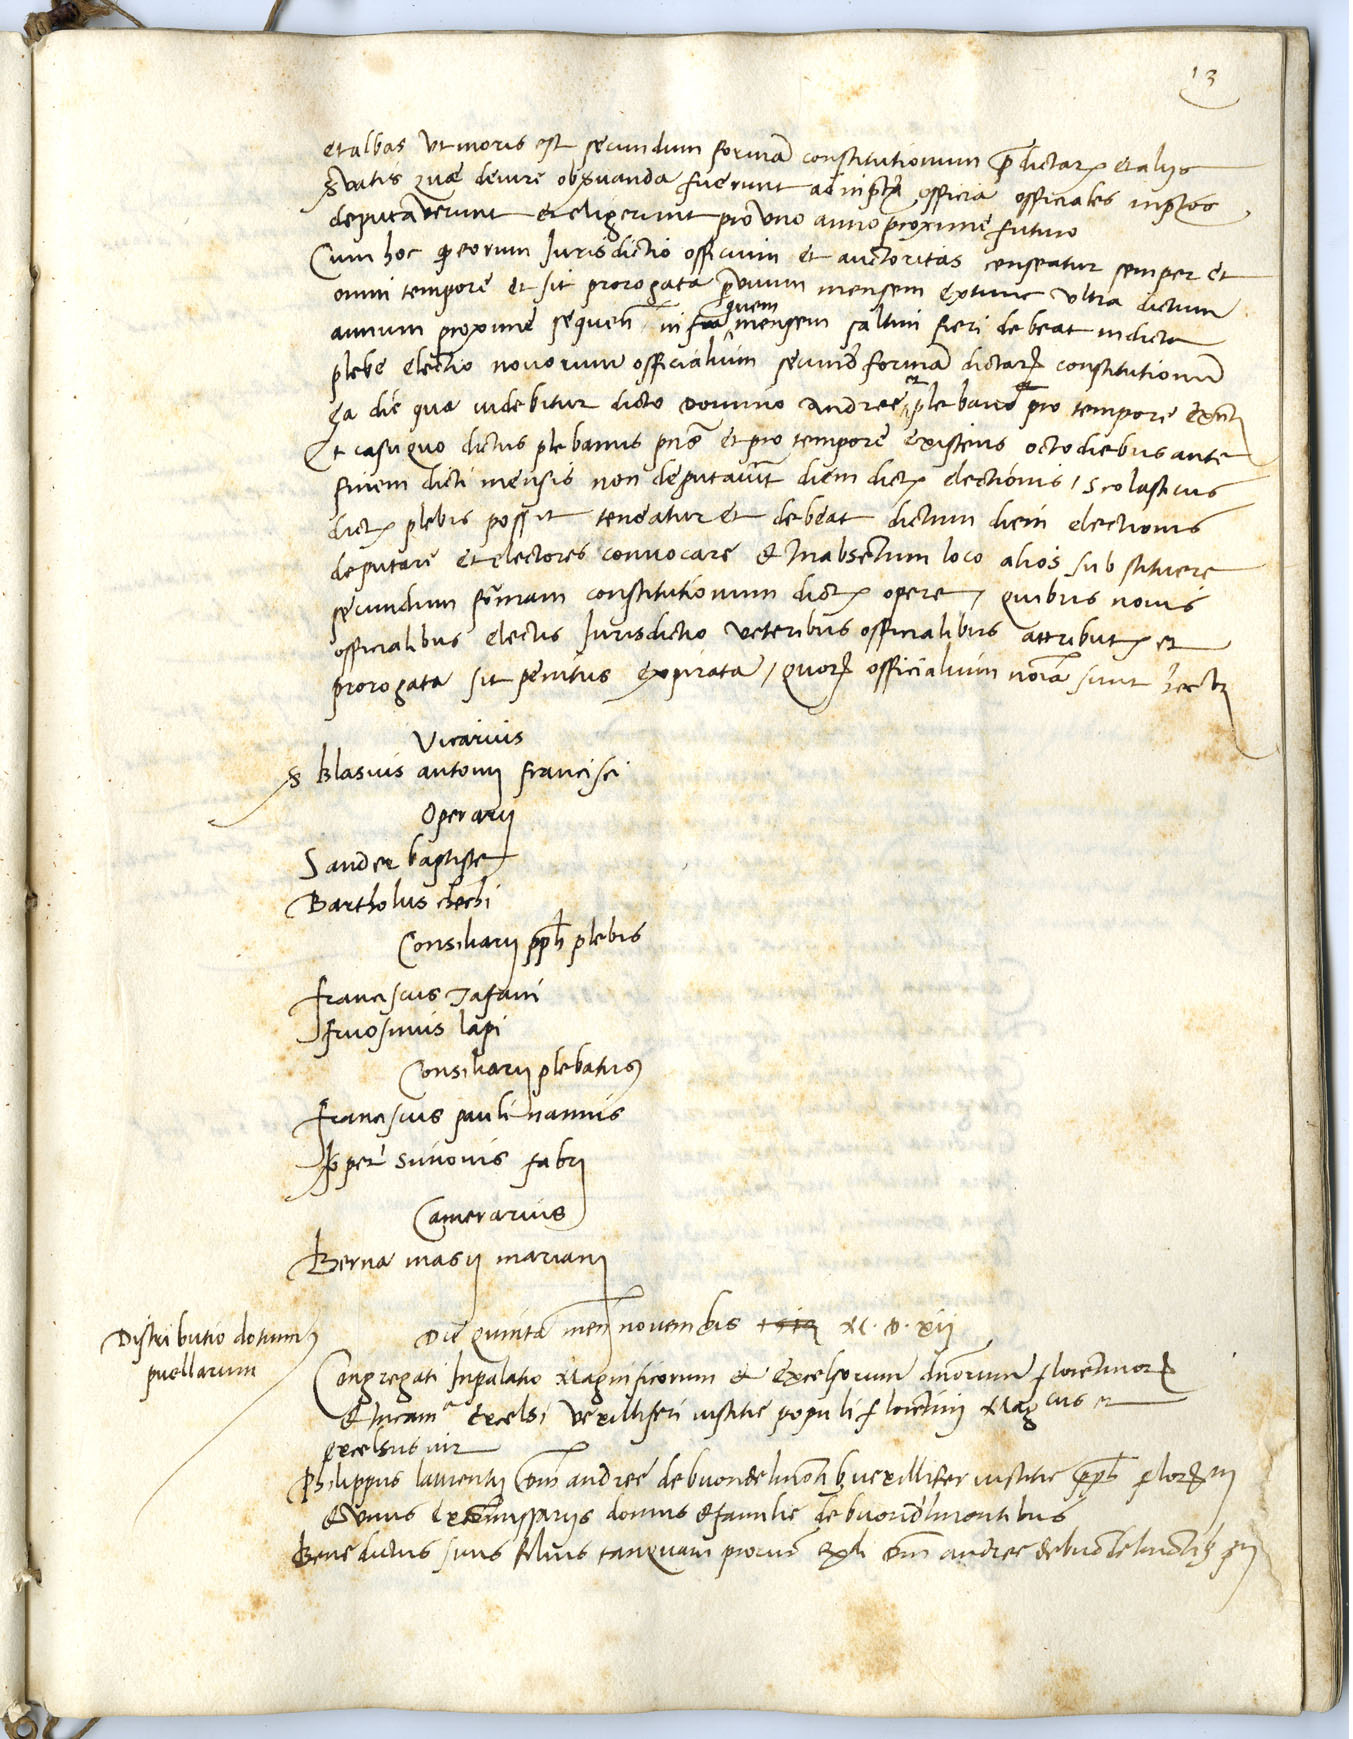 13
et albas ut moris est secundum formā constitutionum p̄dictar(um) et alijs
servatis que de iure observanda fuerunt ad infr(ascript)a officia officiales infr(ascript)os
deputaverunt et eligerunt pro uno anno proxime futuro
Cum hoc q(uod) eorum Iurisdictio officium et auctoritas censeatur semper et
omni tempore et sit prorogata p(er) unum mensem extunc ultra dictum
annum proxime sequen̄ / infra quem mensem saltim fieri debeat in dicta
plebe electio novorum officialium secund(um) formā dictar(um) constitutionū
ea die qua videbitur dicto domino Andree et plebano pro tempore exn̄ti
Et casu quo dictus plebanus pn̄s et pro tempore existens octo diebus ante
finem dicti mensis non deputaver̄it diem dict(e) electionis / Scolasticus
dict(e) plebis possit teneatur et debeat dictum diem electionis
deputare et electores convocare et In absentum loco alios substituere
secundum formam constitutionum dict(e) opere / quibus novis
officialibus electis Iurisdictio veteribus officialibus attribut(a) et
prorogata sit penitus expirata / quor(um) officialium noīa sunt hec v(idelicet)
Vicarius
s(er) Blasius antonij francisci
Operarij
Sander baptiste
Bartholus chechi
Consiliarij pp̄li plebis
franciscus Tafani
fruosinus lapi
Consiliarij plebatus
franciscus pauli nannis
Iſoper simonis fabrj
Camerarius
Berna masij marianj
Distributio dotium
puellarum
Die quinta men̄ novembris M. D. xij
Congregati In palatio Magnificorum et excelsorum dn̄orum florentinor(um)
et In cam(er)a excelsi vexilliferi iustitie populi florentini Mag(nifi)cus et
excelsus vir
Philippus laurentij dn̄i andree de buondelmontib(us) vexillifer iustitie pp̄li flor(entini)
et unus ex com̄issarijs domus et familie de buondelmontibus
Benedictus suus filius tanquam dn̄i andree de buondelmontib(us)